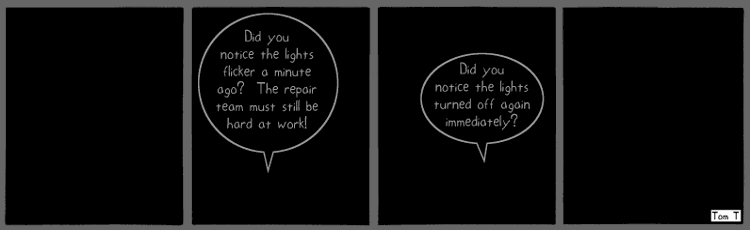 Did you
notice the lights
flicker a minute
ago? The repair
team must still be
hard at work!
Did you
notice the lights
turned off again
immediately?
Tom T